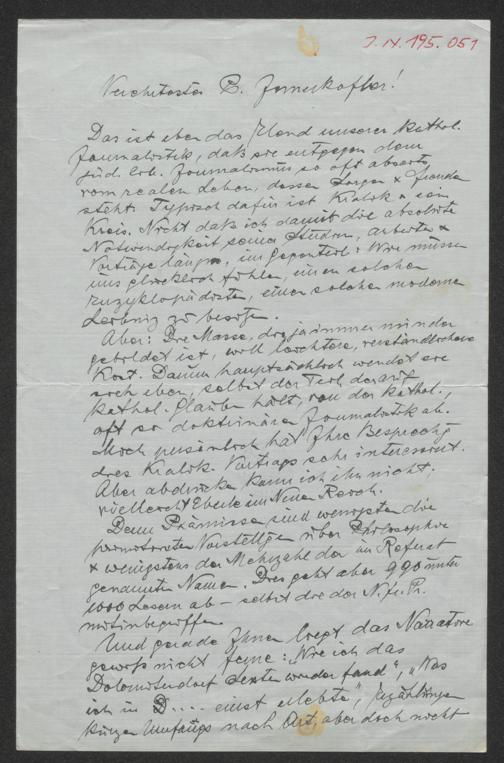 J. N. 195.051
Verehrtester B. Jernerkofler!
Das ist eben das Elend unserer kathol.
Journalistik, daß sie entgegen dem
jüd. lib. Journalismus so oft abseits
vom realen Leben, dessen Sorgen & Freuden
steht. Typisch dafür ist Kralik & sein
Kreis. Nicht daß ich damit die absolute
Notwendigkeit seiner Studien, Arbeiten &
Vorträge läugne, im Gegenteil: Wir müssen
uns glücklich fühlen, einen solchen
Enzyklopädisten, einen solchen modernen
Leibniz zu besitzen.
Aber: Die Masse, die ja immer minder
gebildet ist, will leichtere, verständlichere
Kost. Darum hauptsächlich wendet sie
sich eben, selbst der Teil der auf
kathol. Glauben hält, von der kathol.,
oft so doktrinären Journalistik ab.
Mich persönlich hat Ihre Besprechg
des Kralik-Vortrags sehr interessiert.
Aber abdrucken kann ich ihn nicht.
vielleicht Eberle im Neuen Reich.
Denn Prämisse sind wenigsten die
primitivsten Vorstellgen über Philosophie
& wenigstens der Mehrzahl der im Referat
genannten Namen. Dies geht aber 990 unter
1000 Lesern ab – selbst die der N. fr. Pr.
mitinbegriffen.
Und gerade Ihnen liegt das Narrative
gewiß nicht ferne: „Wie ich das
Dolomitendorf Sexten wieder fand", „Was
ich in D.... einst erlebte", Erzählungen
kurzen Umfangs nach Art, aber doch nicht